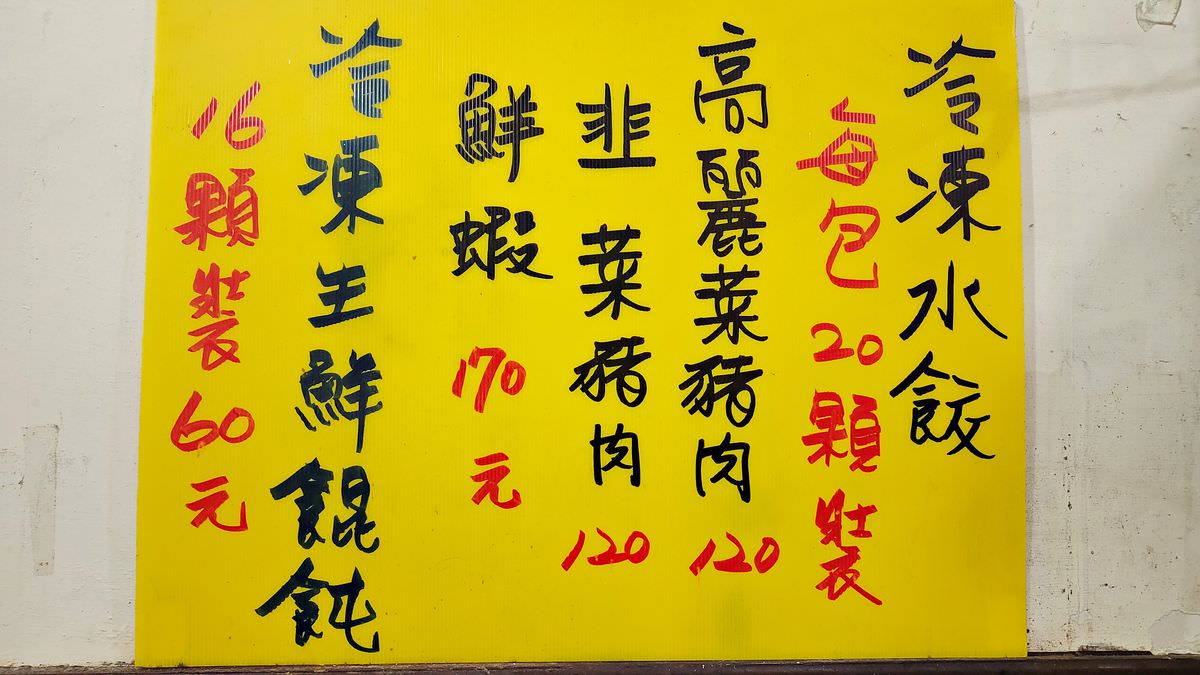 冷凍水餃
每包20顆裝
高麗菜豬肉120
韭菜豬肉120
鮮蝦170元
冷凍生鮮餛飩
16顆裝60元